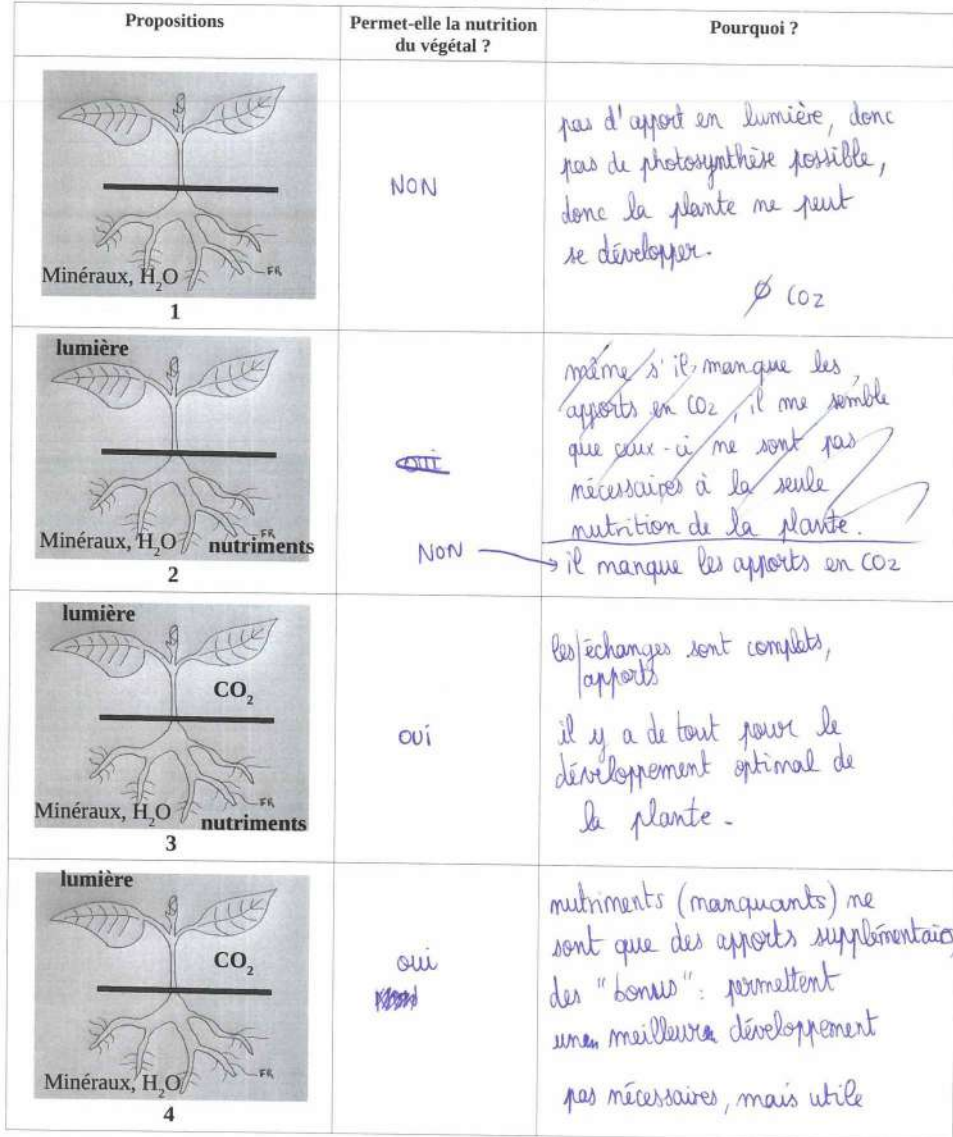 Propositions
Permet-elle la nutrition
du végétal ?
Pourquoi ?
Minéraux, H₂O
FR
1
NON
pas d'apport en lumière, donc
pas de photosynthèse possible,
donc la plante ne peut
se développer.
Ø CO2
lumière
Minéraux, H₂O
FR
nutriments
2
oui
NON
même s'il manque les
apports en CO2, il me semble
que ceux-ci ne sont pas
nécessaires à la seule
nutrition de la plante.
il manque les apports en CO2
lumière
CO₂
Minéraux, H₂O
FR
nutriments
3
oui
les échanges sont complets,
apports
il y a de tout pour le
développement optimal de
la plante.
lumière
CO₂
Minéraux, H₂O
FR
4
oui
nutriments (manquants) ne
sont que des apports supplémentaires
des "bonus": permettent
un meilleur développement
pas nécessaires, mais utile